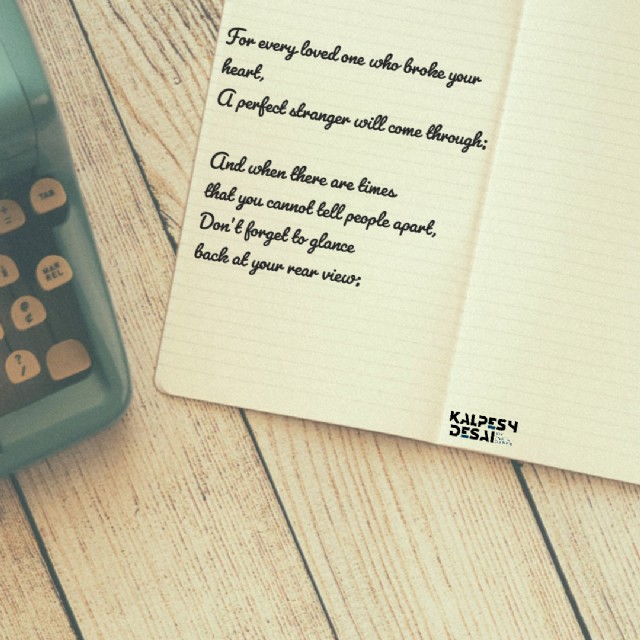 For every loved one who broke your
heart,
A perfect stranger will come through;
And when there are times
that you cannot tell people apart,
Don't forget to glance
back at your rear view;
TAB
MAR
REL
?
/
KALPESH
DESAI